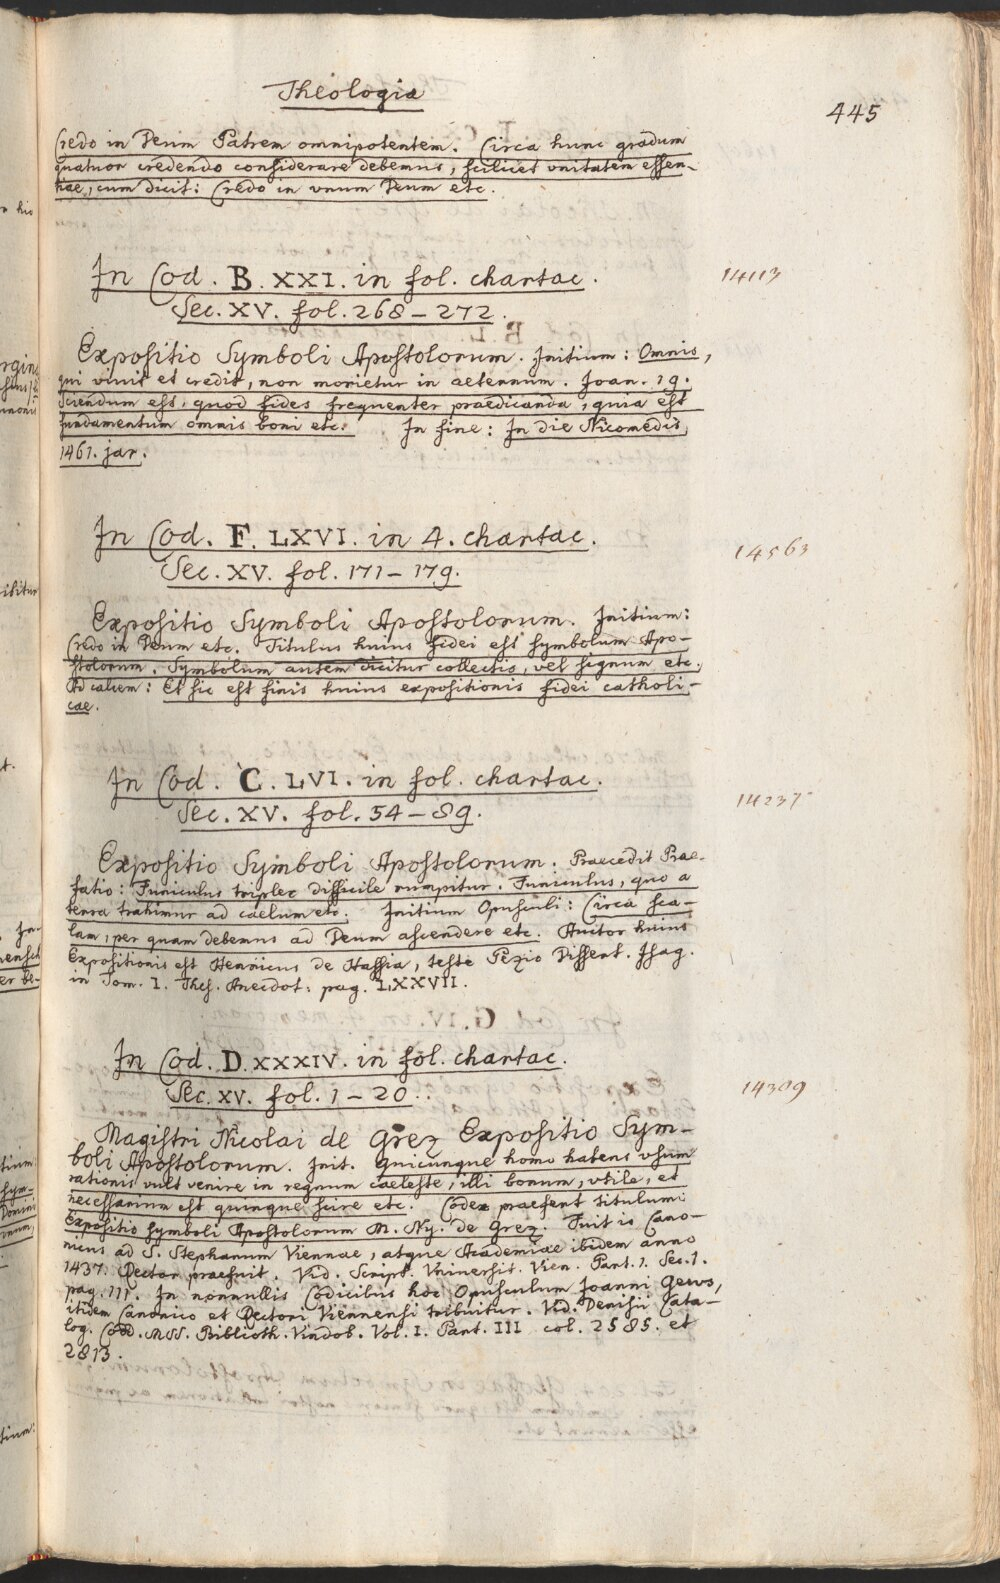 Theologia
445
Credo in Deum Patrem omnipotentem. Circa hunc gradum
quatuor credendo considerare debemus, scilicet unitatem essen-
tiae, cum dicit: Credo in vnum Deum etc.
In Cod. B. XXI. in fol. chartac.
14113
Sec. XV. fol. 268 – 272.
Expositio Symboli Apostolorum. Initium: Omnis,
qui vivit et credit, non morietur in aeternum. Joan. 19.
Sciendum est, quod fides frequenter praedicanda, quia est
fundamentum omnis boni etc. In fine: In die Nicomedis,
1461. jar.
In Cod. F. LXVI. in 4. chartac.
14563
Sec. XV. fol. 171 – 179.
Expositio Symboli Apostolorum. Initium:
Credo in Deum etc. Titulus huius fidei est symbolum Apo-
stolorum. Symbolum autem dicitur collectio, vel signum etc.
Ad calcem: Et sic est finis huius expositionis fidei catholi-
cae.
In Cod. C. LVI. in fol. chartac.
14237
Sec. XV. fol. 54 – 89.
Expositio Symboli Apostolorum. Praecedit Prae-
fatio: Funiculus triplex difficile rumpitur. Funiculus, quo a
terra trahimur ad caelum etc. Initium Opusculi: Circa sca-
lam, per quam debemus ad Deum ascendere etc. Auctor huius
Expositionis est Henricus de Hassia, teste Pezio Dissert. Isag.
in Tom. I. Thes. Anecdot: pag. LXXVII.
In Cod. D. XXXIV. in fol. chartac.
14309
Sec. XV. fol. 1 – 20.
Magistri Nicolai de Grez Expositio Sym-
boli Apostolorum. Init. Quicunque homo habens vsum
rationis vult venire in regnum caeleste, illi bonum, vtile, et
necessarium est quinque scire etc. Codex praefert titulum:
Expositio symboli Apostolorum M. Ny. de Grez. Fuit is Cano-
nicus ad S. Stephanum Viennae, atque Academiae ibidem anno
1437. Rector praefuit. Vid. Script. Vniversit. Vien. Part. 1. Sec. 1.
pag. 111. In nonnullis Codicibus hoc Opusculum Joanni Gews,
itidem Canonico et Rectori Viennensi tribuitur. Vid. Denisii Cata-
log. Codd. MSS. Biblioth. Vindob. Vol. I. Part. III col. 2585. et
2813.